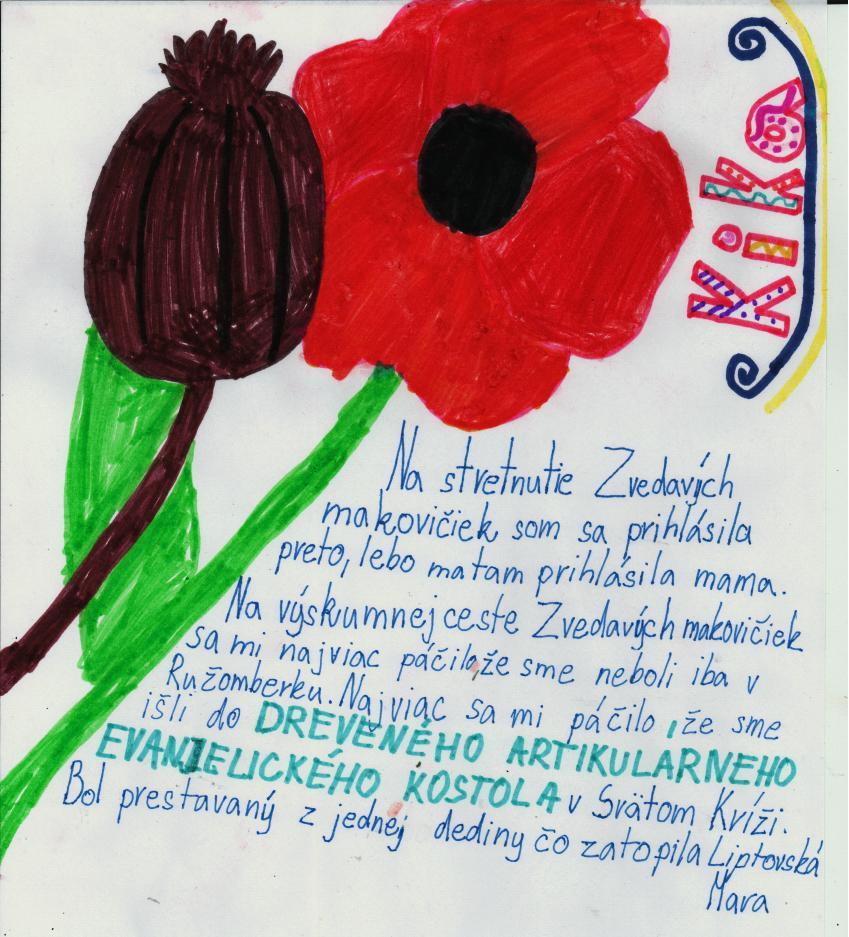 Kika
Na stretnutie Zvedavých
makovičiek som sa prihlásila
preto, lebo ma tam prihlásila mama.
Na výskumnej ceste Zvedavých makovičiek
sa mi najviac páčilo, že sme neboli iba v
Ružomberku. Najviac sa mi páčilo, že sme
išli do DREVENÉHO ARTIKULARNEHO
EVANJELICKÉHO KOSTOLA v Svätom Kríži.
Bol prestavaný z jednej dediny čo zatopila Liptovská
Mara